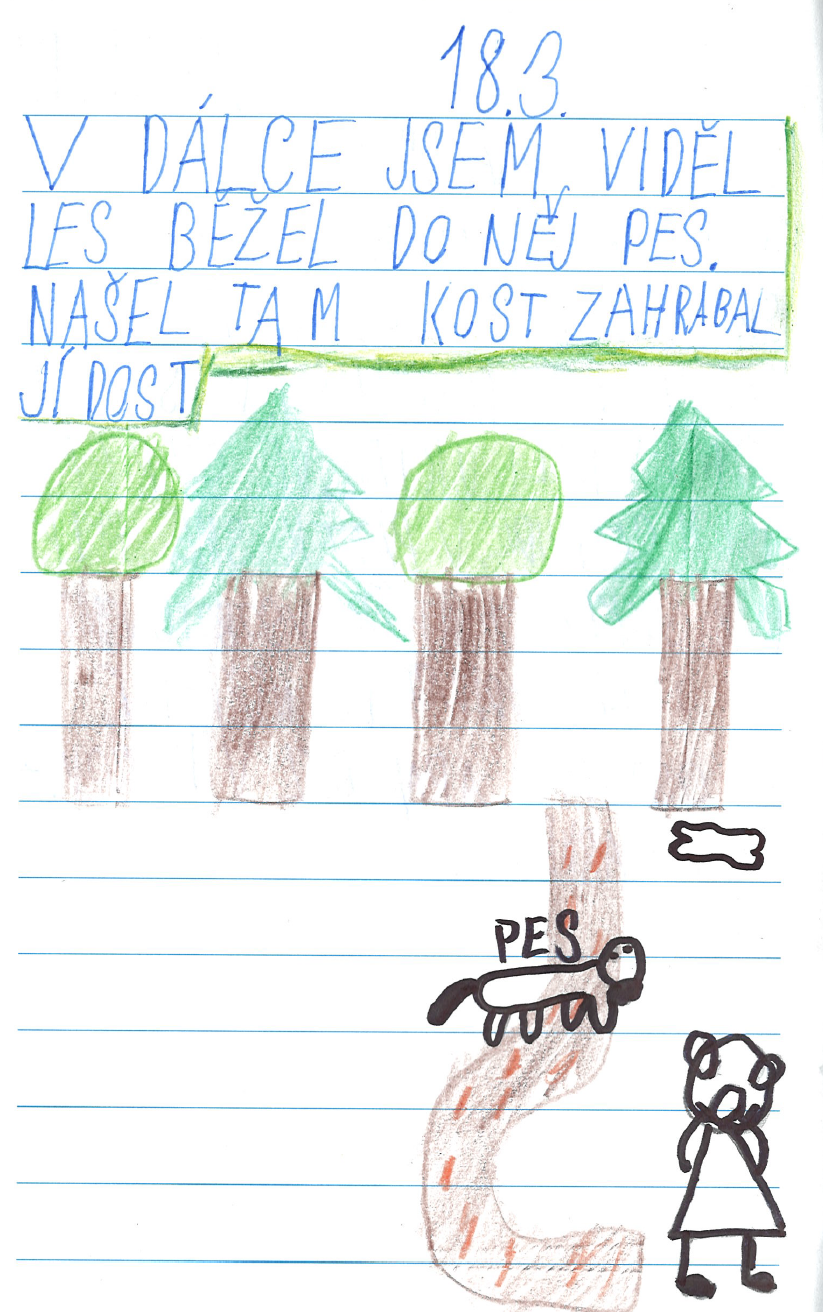 18.3.
V DÁLCE JSEM VIDĚL
LES BĚŽEL DO NĚJ PES.
NAŠEL TAM KOST ZAHRABAL
JÍ DOST
PES